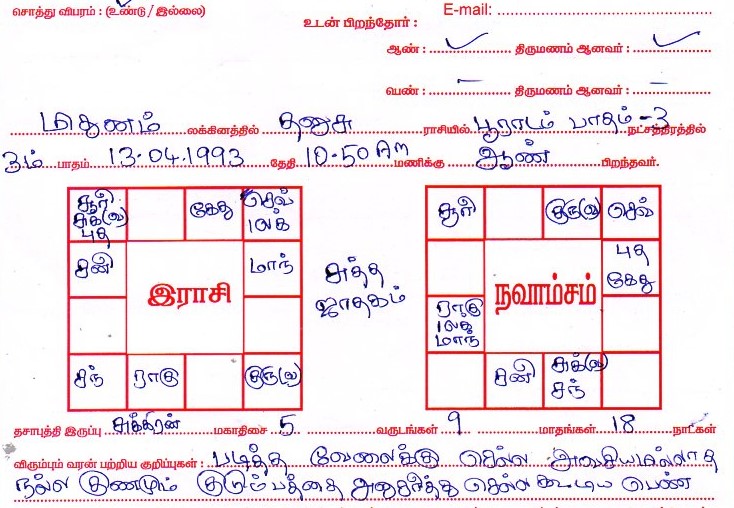 சொத்து விபரம் : (உண்டு / இல்லை)
E-mail:
உடன் பிறந்தோர் :
ஆண் : திருமணம் ஆனவர் :
பெண் : - திருமணம் ஆனவர் : -
மிதுனம் லக்கினத்தில் தனுசு ராசியில் பூராடம் பாதம் -3 நட்சத்திரத்தில்
3ம் பாதம் 13.04.1993 தேதி 10.50 Am மணிக்கு ஆண் பிறந்தவர்.
சூரி சுக்(வ) புத
கேது
செவ் லக்
சனி
மாந்
இராசி
சந்
ராகு
குரு(வ)
சுத்த ஜாதகம்
சூரி
குரு(வ)
செவ்
புத கேது
நவாம்சம்
ராகு லக் மாந்
சனி
சுக்(வ) சந்
தசாபுத்தி இருப்பு சுக்கிரன் மகாதிசை 5 வருடங்கள் 9 மாதங்கள் 18 நாட்கள்
விரும்பும் வரன் பற்றிய குறிப்புகள் : படித்த வேலைக்கு செல்ல அவசியமில்லாத
நல்ல குணமும் குடும்பத்தை அனுசரித்து செல்ல கூடிய பெண்